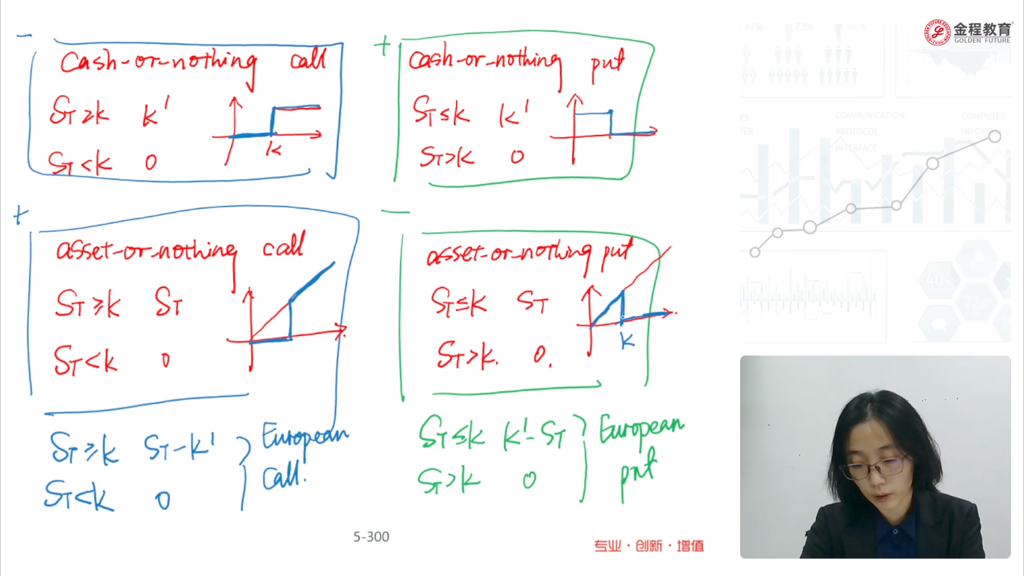 金程教育
GOLDEN FUTURE
- +
cash-or-nothing call
S_T≥K K'
S_T<K 0
K
cash-or-nothing put
S_T≤K K'
S_T>K 0
+ -
asset-or-nothing call
S_T≥K S_T
S_T<K 0
asset-or-nothing put
S_T≤K S_T
S_T>K. 0.
K
S_T≥K S_T-K'
S_T<K 0
European
call.
S_T≤K K'-S_T
S_T>K 0
European
put
5-300
专业·创新·增值
COMMUNICATION
PROTOCOL
INTERFACE